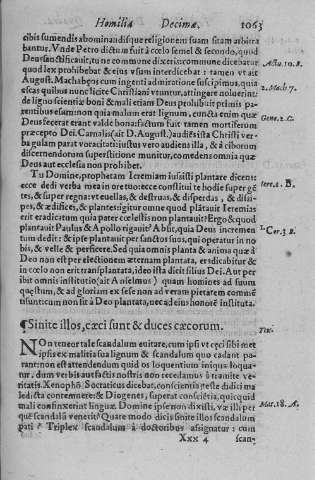 Homilia Decimæ. 1063
cibis sumendis abominandisque religionem suam sitam arbitra
bantur. Vnde Petro dictum fuit à cœlo semel & secundo, quod
Deus sanctificauit, tu ne commune dixeris: commune dicebatur Acto. 10. B.
quod lex prohibebat & eius vsum interdicebat: tamen vt ait
August. Machabeos cum ingenti admiratione suscipimus, quia 2. Mach. 7.
escas quibus nunc licite Christiani vtuntur, attingere noluerint:
de ligno scientiæ boni & mali etiam Deus prohibuit primis pa-
rentibus esum: non quia malum erat lignum, cuncta enim quæ Gene. 2. C.
Deus fecerat erant valde bona: factum fuit tamen mortiferum
præcepto Dei. Carnalis (ait D. August.) audiēs ista Christi ver-
ba gulam parat voracitati: iustus vero audiens illa, & à ciborum
discernendorum superstitione munitur, comedens omnia quæ
Deus aut ecclesia non prohibet.
Tu Domine, prophetam Ieremiam iusisti plantare dicens:
ecce dedi verba mea in ore tuo: ecce constitui te hodie super gē Iere. 1. B.
tes, & super regna: vt euellas, & destruas, & disperdas, & dissi-
pes, & ædifices, & plantes: igitur omne quod plātauit Ieremias
erit eradicatum quia pater cœlestis non plantauit? Ergo & quod
plantauit Paulus & Apollo rigauit? Absit, quia Deus incremen 1. Cor. 3. B.
tum dedit: & ipse plantauit per sanctos suos, qui operatur in no
bis, & velle & perficere. Sed quia omnis planta & anima quæ à
Deo non est per electionem æternam plantata, eradicabitur &
in cœlo non erit transplantata, ideo ista dicit filius Dei. Aut per
ibit omnis institutio (ait Anselmus) quam homines ad suum
quæstum, & ad gloriam ex sese non ad veram pietarem commē
ti sunt: ticum non sit à Deo plantata, nec ad eius honorē instituta.
¶Sinite illos, cæci sunt & duces cæcorum. Tex.
NOn teneor tale scandalum euitare, cum ipsi vt cęci sibi met
ipsis ex malitia sua lignum & scandalum quo cadant pa-
rant: non est attendendum quid os loquentium iniqua loqua-
tur, dum verbis aut factis nostris non recedamus à tramite ve-
ritatis. Xenophō. Socraticus dicebat, conscientia teste didici ma
ledicta contemnere: & Diogenes, superat consciētia, quicquid
mali confinxerit linguæ. Domine ipse non dixisti, væ illi per Mat. 18. A.
quē scandalū venerit? Quare modo dicis sinite illos scandalum
pati? Triplex scandalum à doctoribus assignatur: cum
Xxx 4 scan-